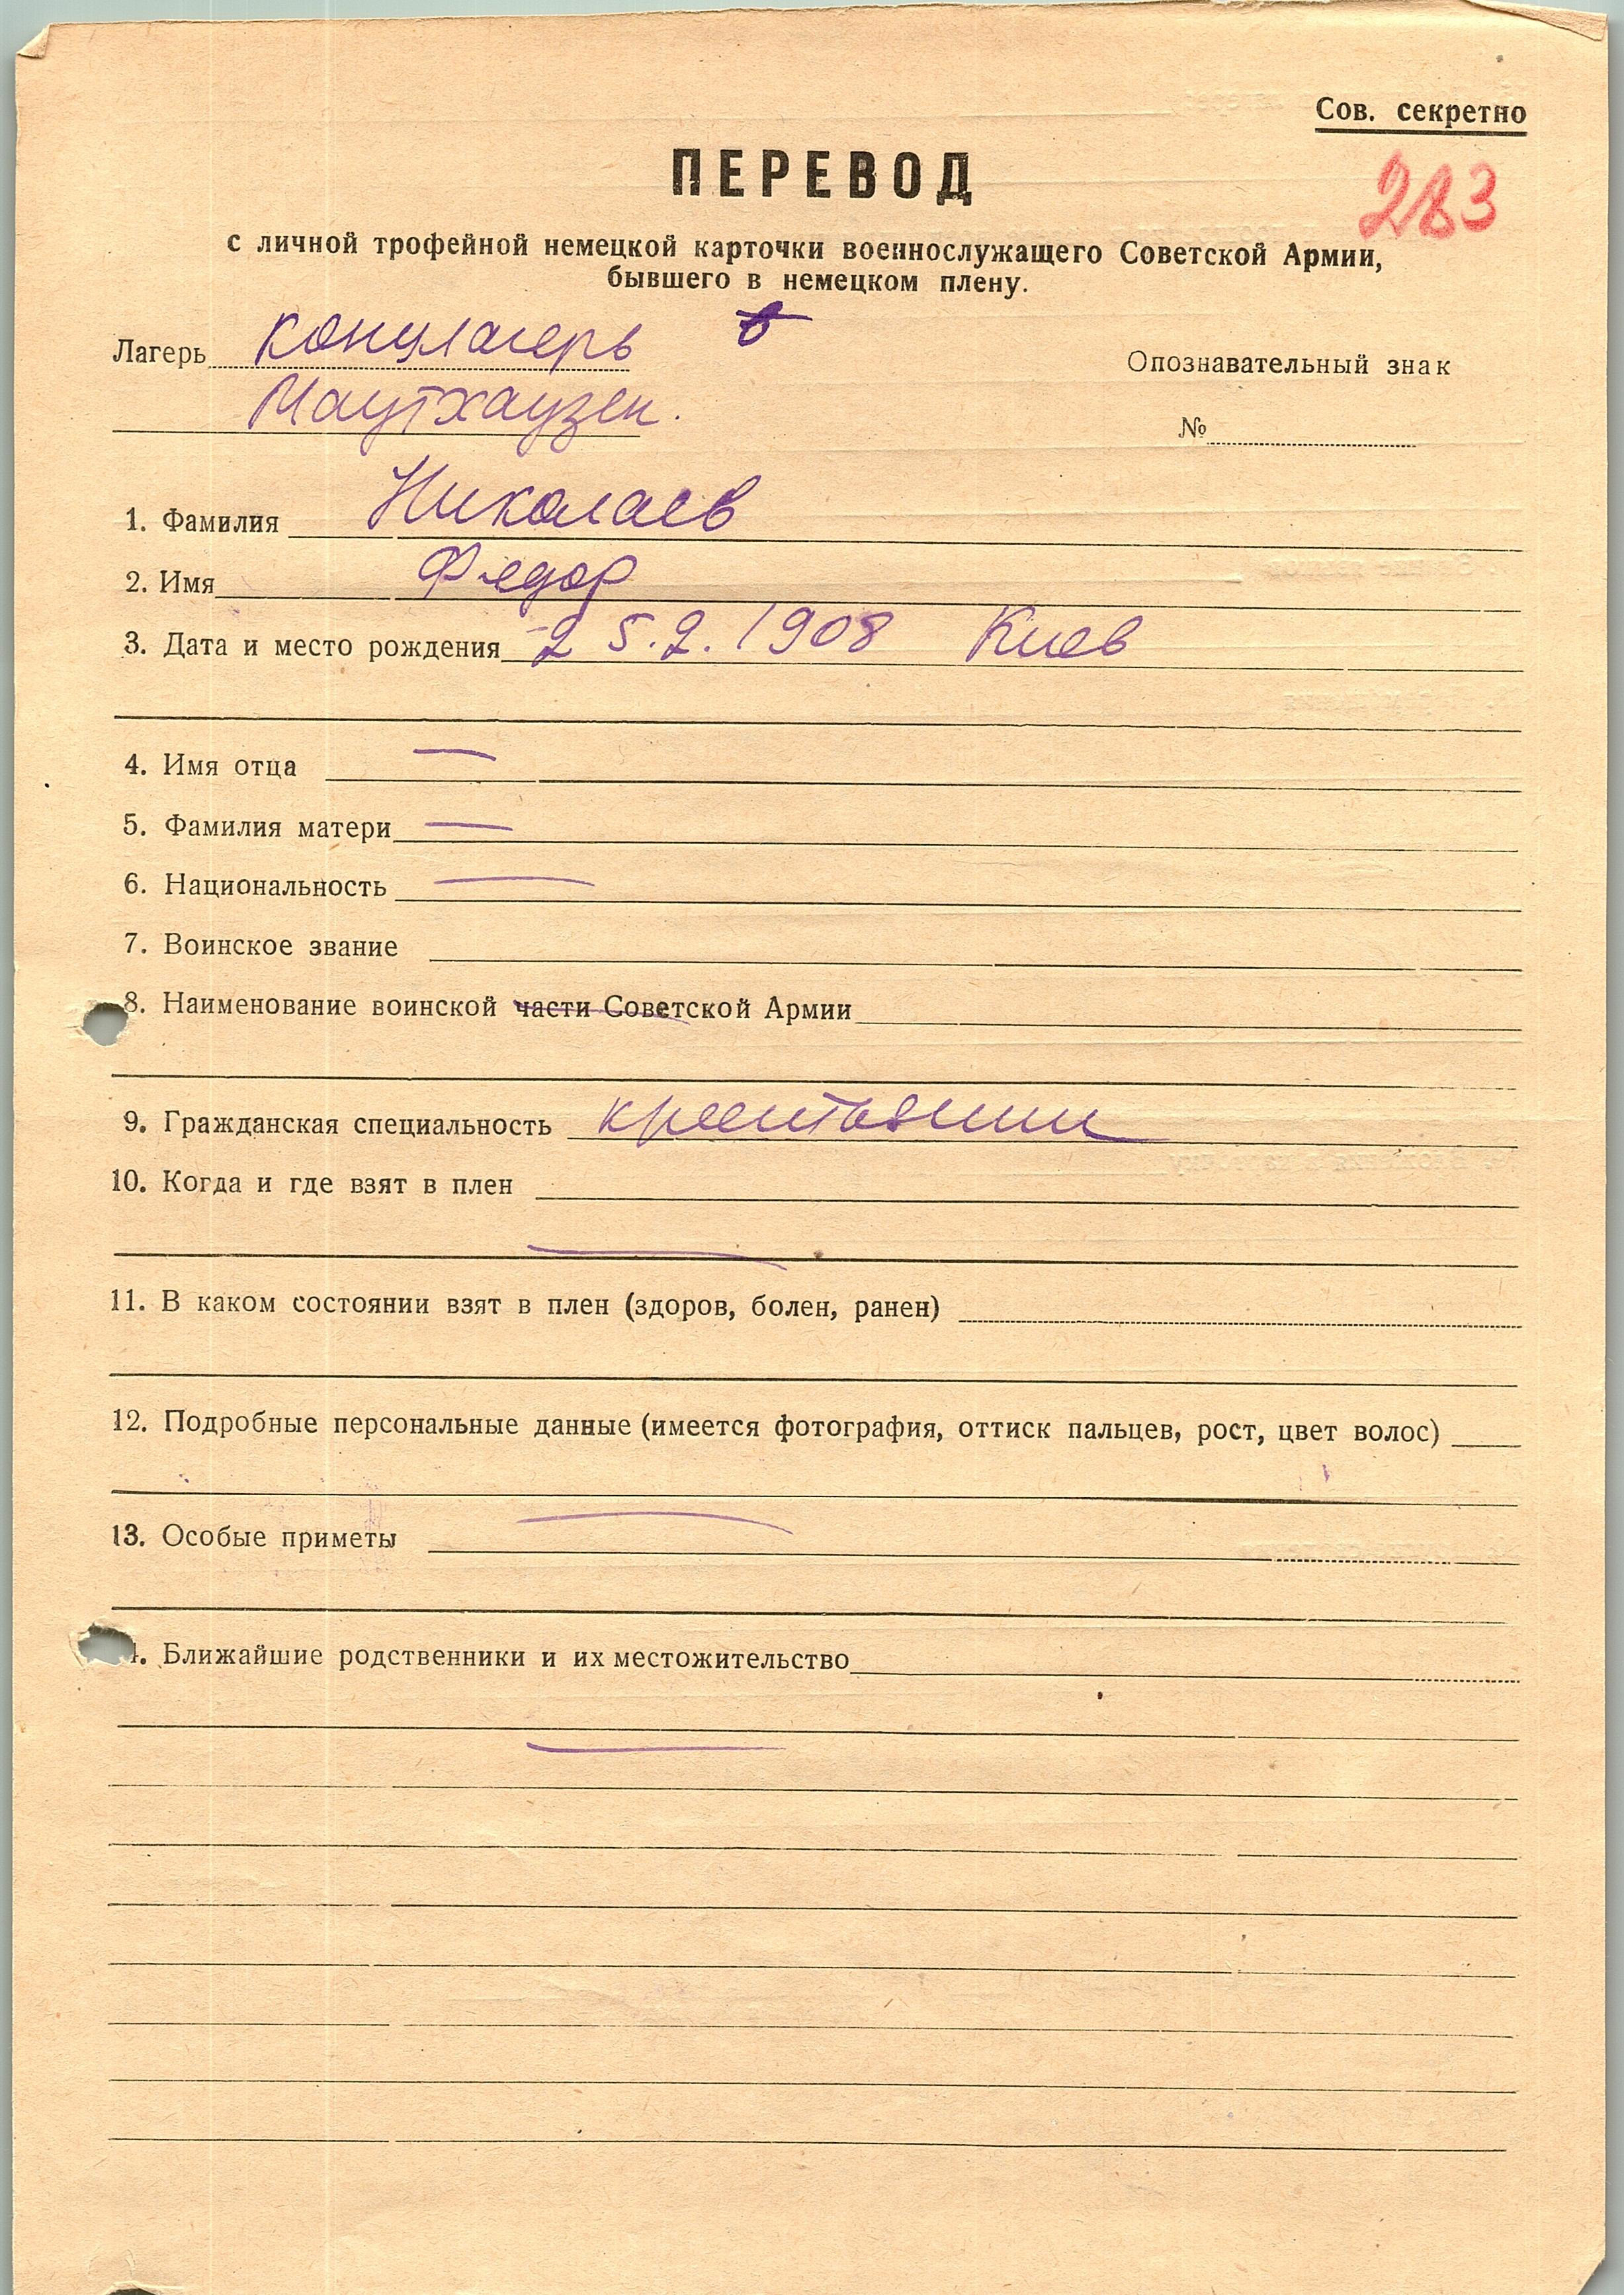 Сов. секретно
ПЕРЕВОД
283
с личной трофейной немецкой карточки военнослужащего Советской Армии,
бывшего в немецком плену.
Лагерь концлагерь в
Маутхаузен.
Опознавательный знак
№
1. Фамилия Николаев
2. Имя Федор
3. Дата и место рождения 25.2.1908 Киев
4. Имя отца —
5. Фамилия матери —
6. Национальность —
7. Воинское звание
8. Наименование воинской части Советской Армии
9. Гражданская специальность крестьянин
10. Когда и где взят в плен
11. В каком состоянии взят в плен (здоров, болен, ранен)
12. Подробные персональные данные (имеется фотография, оттиск пальцев, рост, цвет волос)
13. Особые приметы
4. Ближайшие родственники и их местожительство